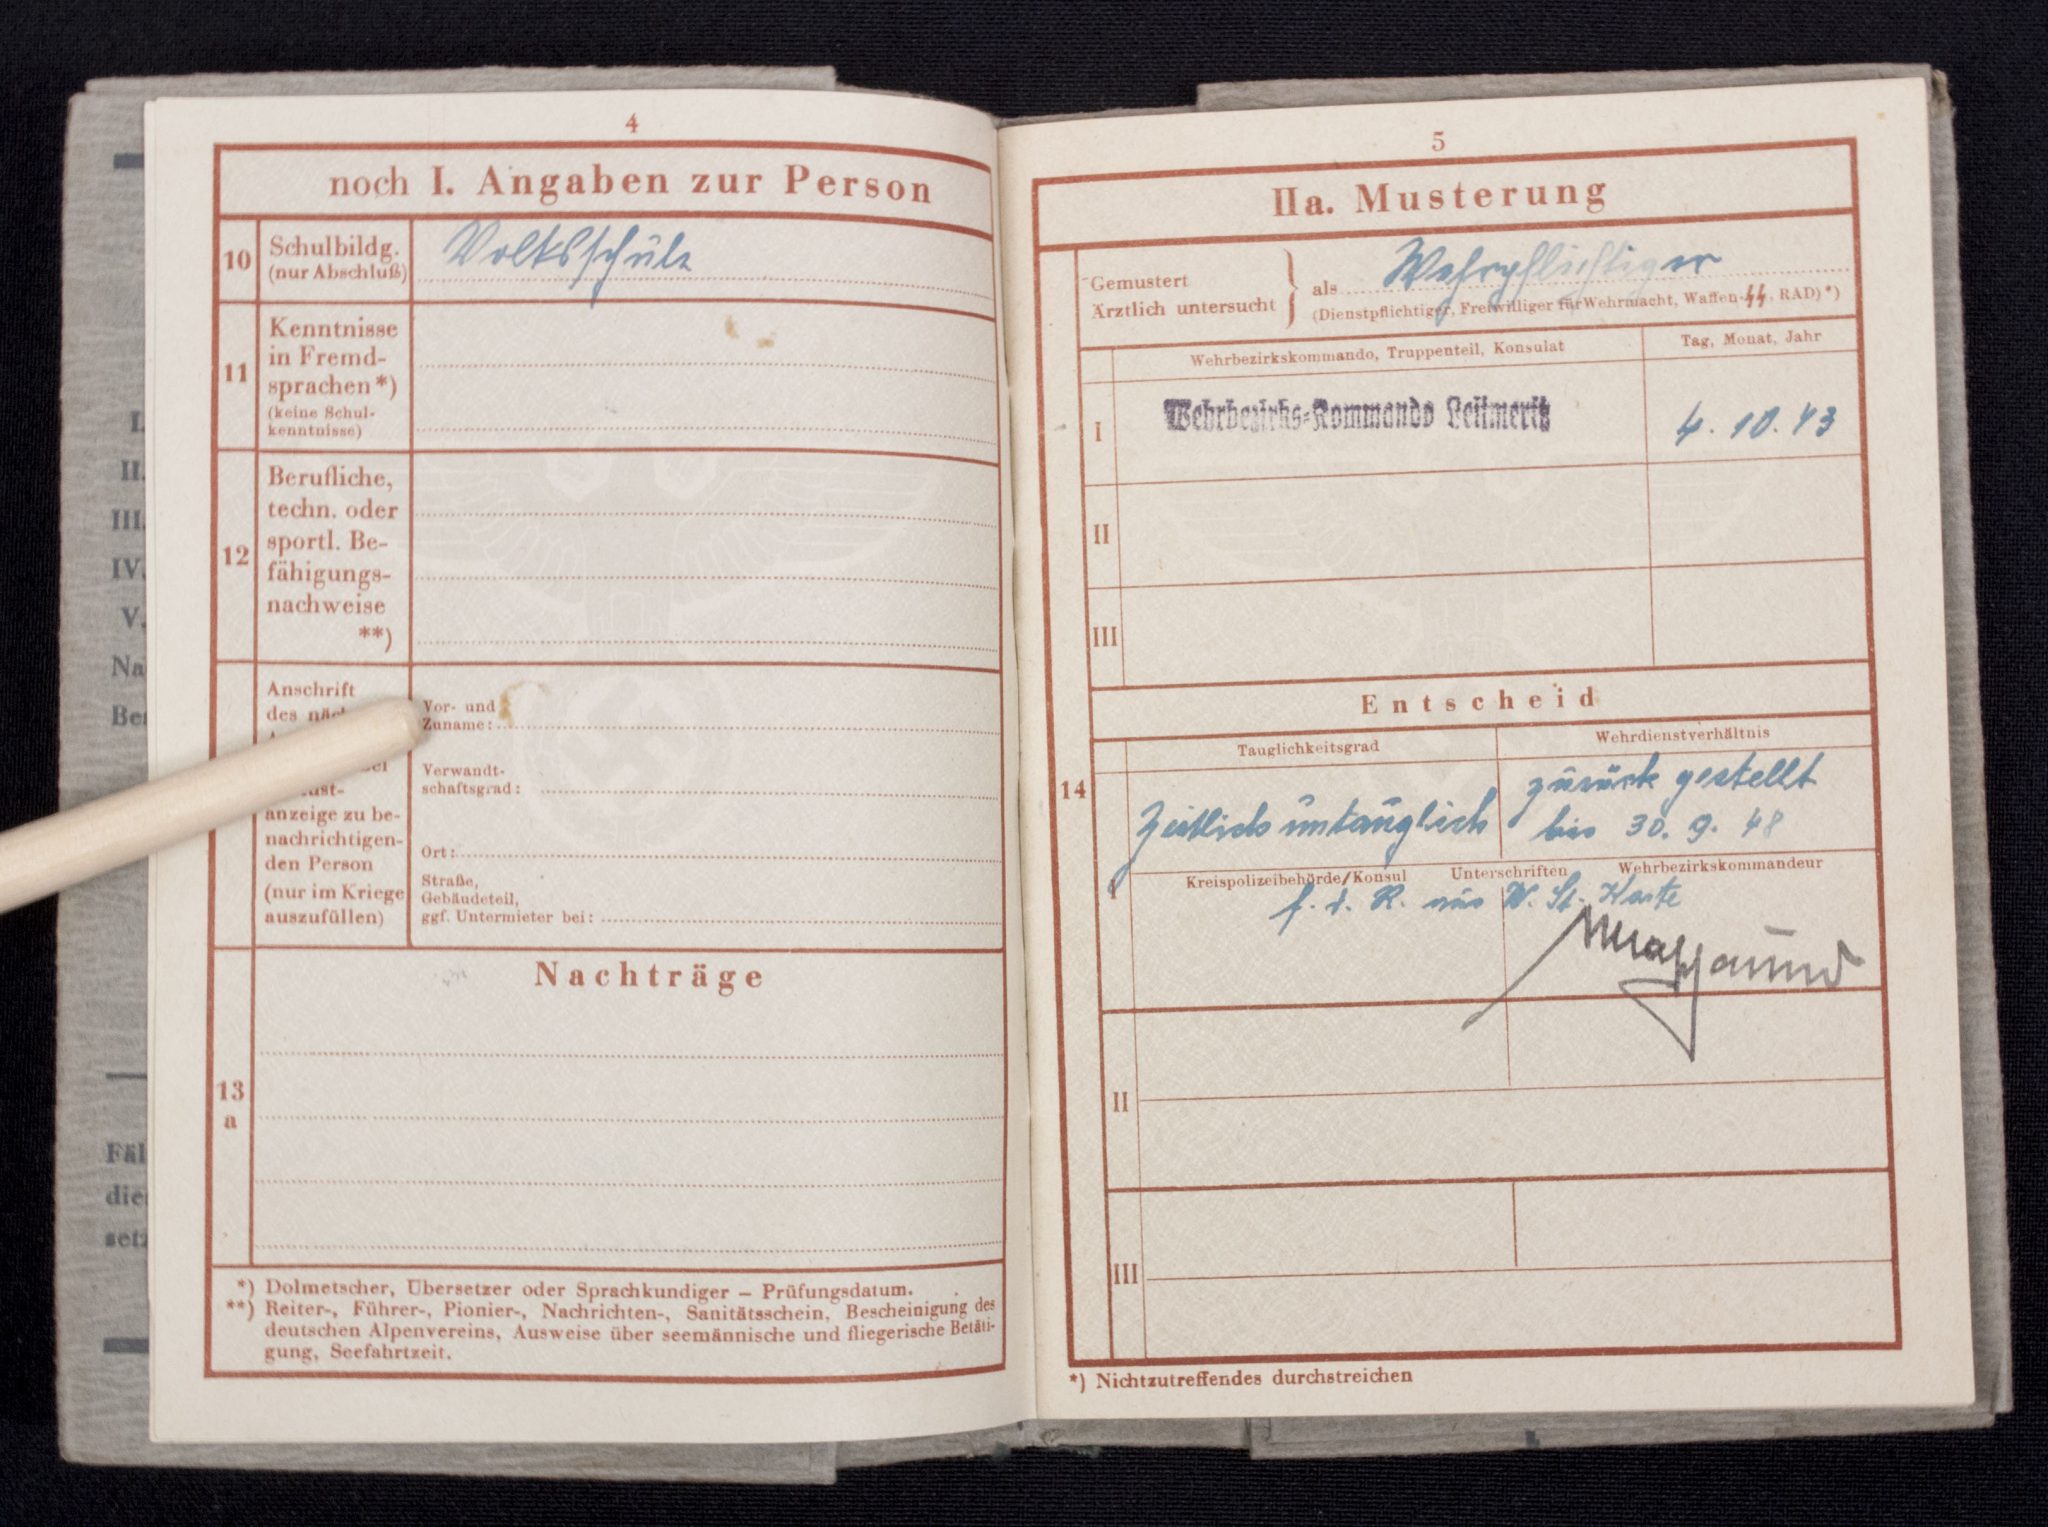 I.
II.
III.
IV.
V.
4
noch I. Angaben zur Person
10
Schulbildg.
(nur Abschluß)
Volksschule
11
Kenntnisse
in Fremd-
sprachen*)
(keine Schul-
kenntnisse)
12
Berufliche,
techn. oder
sportl. Be-
fähigungs-
nachweise
**)
Anschrift
des
anzeige zu be-
nachrichtigen-
den Person
(nur im Kriege
auszufüllen)
Vor- und
Zuname:
Verwandt-
schaftsgrad:
Ort:
Straße,
Gebäudeteil,
ggf. Untermieter bei:
Nachträge
13
a
*) Dolmetscher, Übersetzer oder Sprachkundiger – Prüfungsdatum.
**) Reiter-, Führer-, Pionier-, Nachrichten-, Sanitätsschein, Bescheinigung des
deutschen Alpenvereins, Ausweise über seemännische und fliegerische Betäti-
gung, Seefahrtzeit.
5
IIa. Musterung
Gemustert
Ärztlich untersucht
als Wehrpflichtiger
(Dienstpflichtiger, Freiwilliger für Wehrmacht, Waffen-SS, RAD)*)
Wehrbezirkskommando, Truppenteil, Konsulat
Tag, Monat, Jahr
I
Wehrbezirks-Kommando Leitmeritz
4. 10. 43
II
III
Entscheid
14
Tauglichkeitsgrad
Wehrdienstverhältnis
Zeitlich untauglich
zurück gestellt
bis 30. 9. 48
Kreispolizeibehörde/Konsul Unterschriften Wehrbezirkskommandeur
I
f. d. R. aus W. St. Karte
II
III
*) Nichtzutreffendes durchstreichen